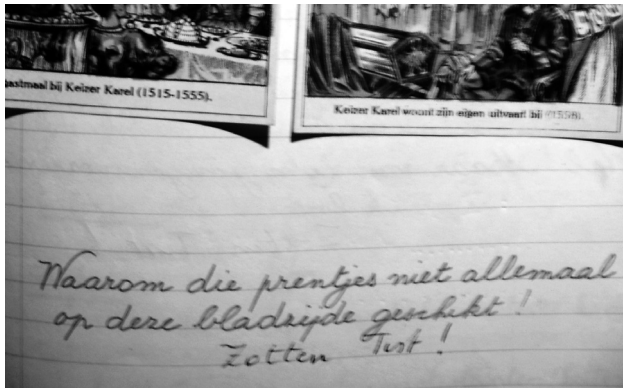 gastmaal bij Keizer Karel (1515-1555).
Keizer Karel woont zijn eigen uitvaart bij (1558).
Waarom die prentjes niet allemaal
op deze bladzijde geschikt !
Zotten Tist !